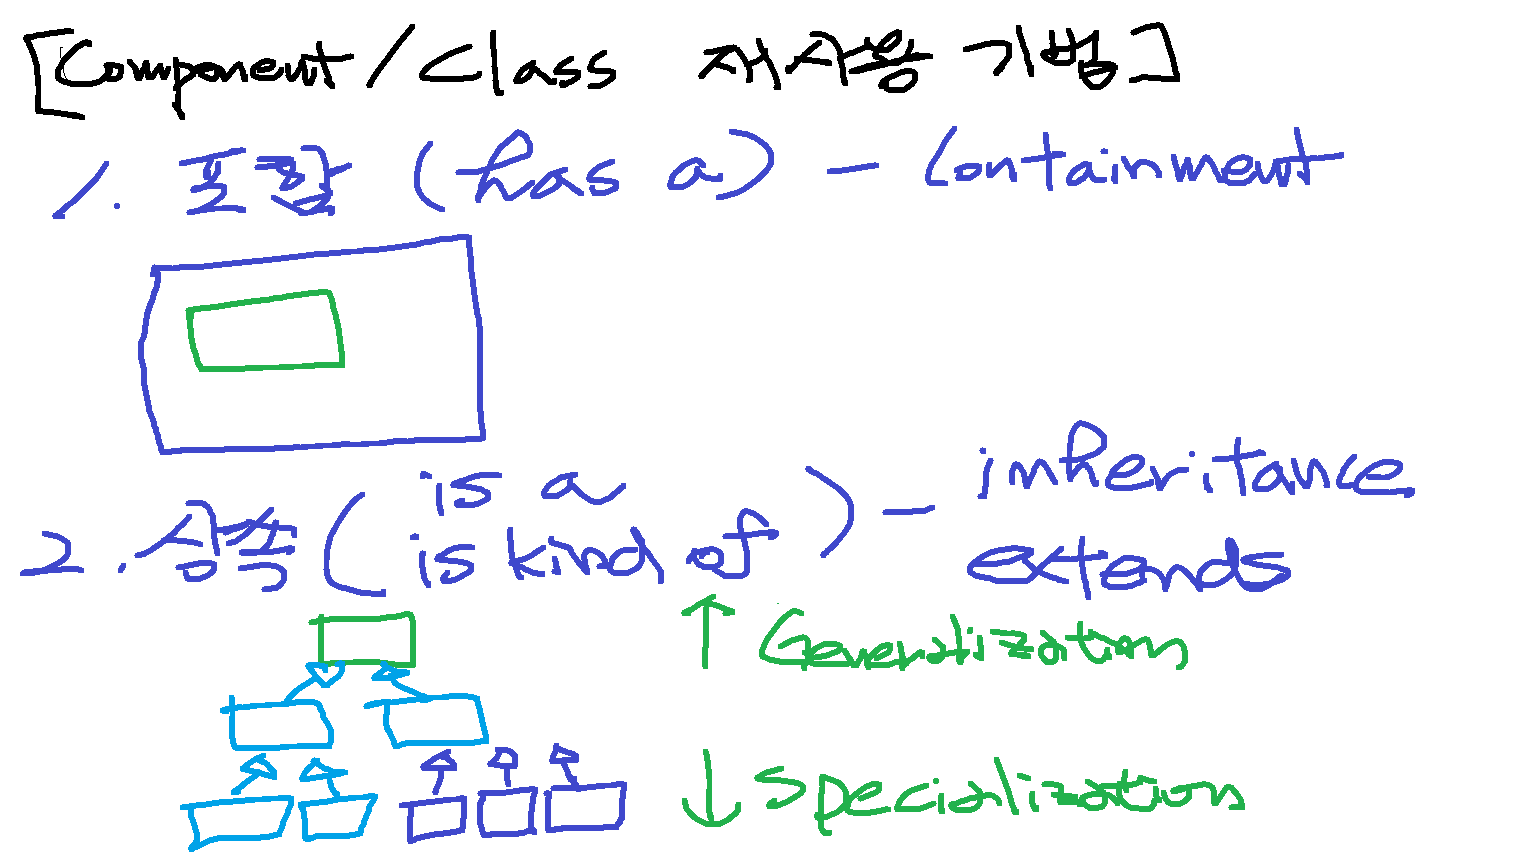 [Component/Class 재사용 기법]
1. 포함 (has a) - Containment
2. 상속 ( is a
is kind of ) - inheritance
extends
↑ Generalization
↓ Specialization